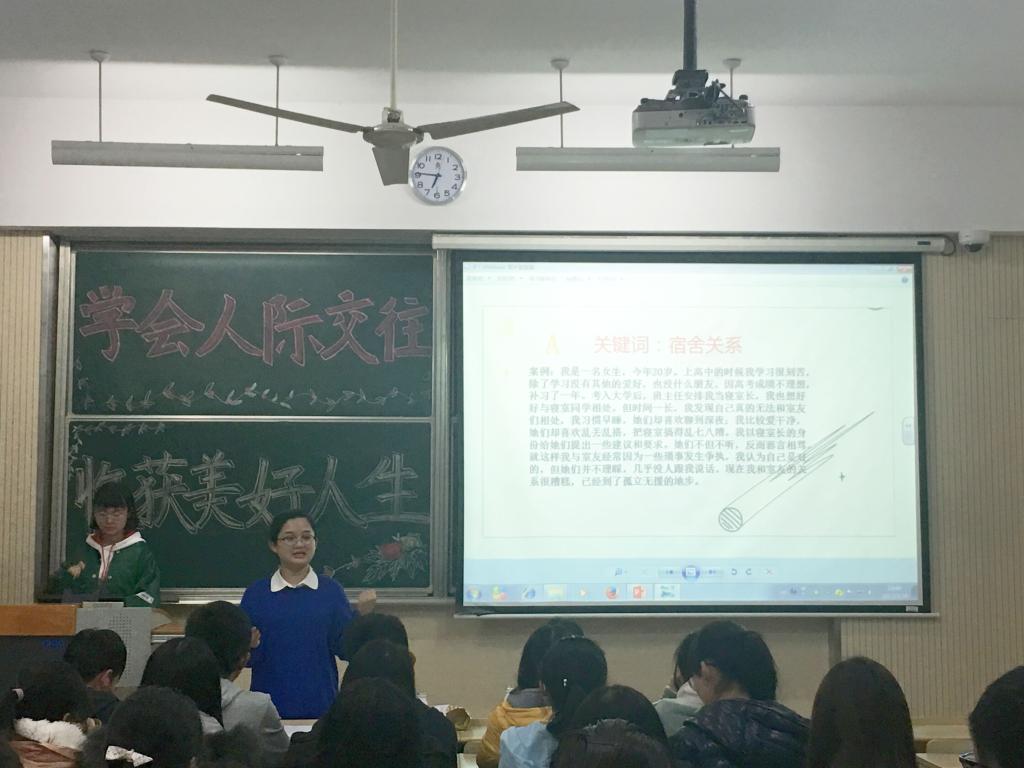 学会人际交往
收获美好人生
12
A
关键词：宿舍关系
案例：我是一名女生，今年20岁，上高中的时候我学习很刻苦，
除了学习没有其他的爱好，也没什么朋友。因高考成绩不理想，
补习了一年。考入大学后，班主任安排我当寝室长，我也想好
好与寝室同学相处。但时间一长，我发现自己真的无法和室友
们相处，我习惯早睡，她们却喜欢聊到深夜；我比较爱干净，
她们却喜欢乱丢乱搭，把寝室搞得乱七八糟。我以寝室长的身
份给她们提出一些建议和要求，她们不但不听，反而恶言相骂，
就这样我与室友经常因为一些琐事发生争执。我认为自己是对
的，但她们并不理睬，几乎没人跟我说话。现在我和室友的关
系很糟糕，已经到了孤立无援的地步。